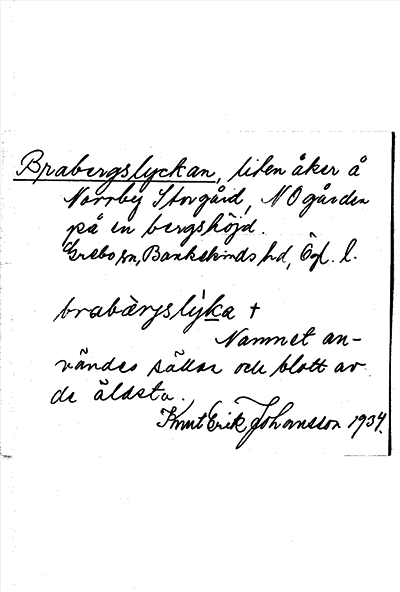 Brabergslyckan, liten åker å
Norrby Storgård, NO gården
på en bergshöjd.
Grebo sn, Bankekinds hd, Ögl. l.
brabàrjslỳka †
Namnet an-
vändes sällan och blott av
de äldsta.
Knut Erik Johansson 1934.